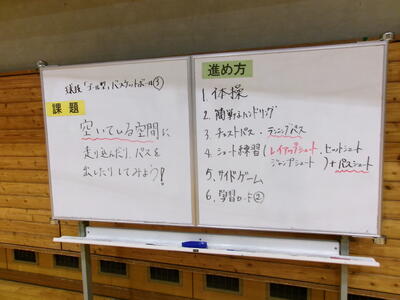 球技「ゴール型」バスケットボール③
課題
空いている空間に
走り込んだり、パスを
出したりしてみよう!
進め方
1. 体操
2. 簡単なハンドリング
3. チェストパス・ランニングパス
4. シュート練習(レイアップシュート、セットシュート
ジャンプシュート)+パスシュート
5. サイドゲーム
6. 学習カード②